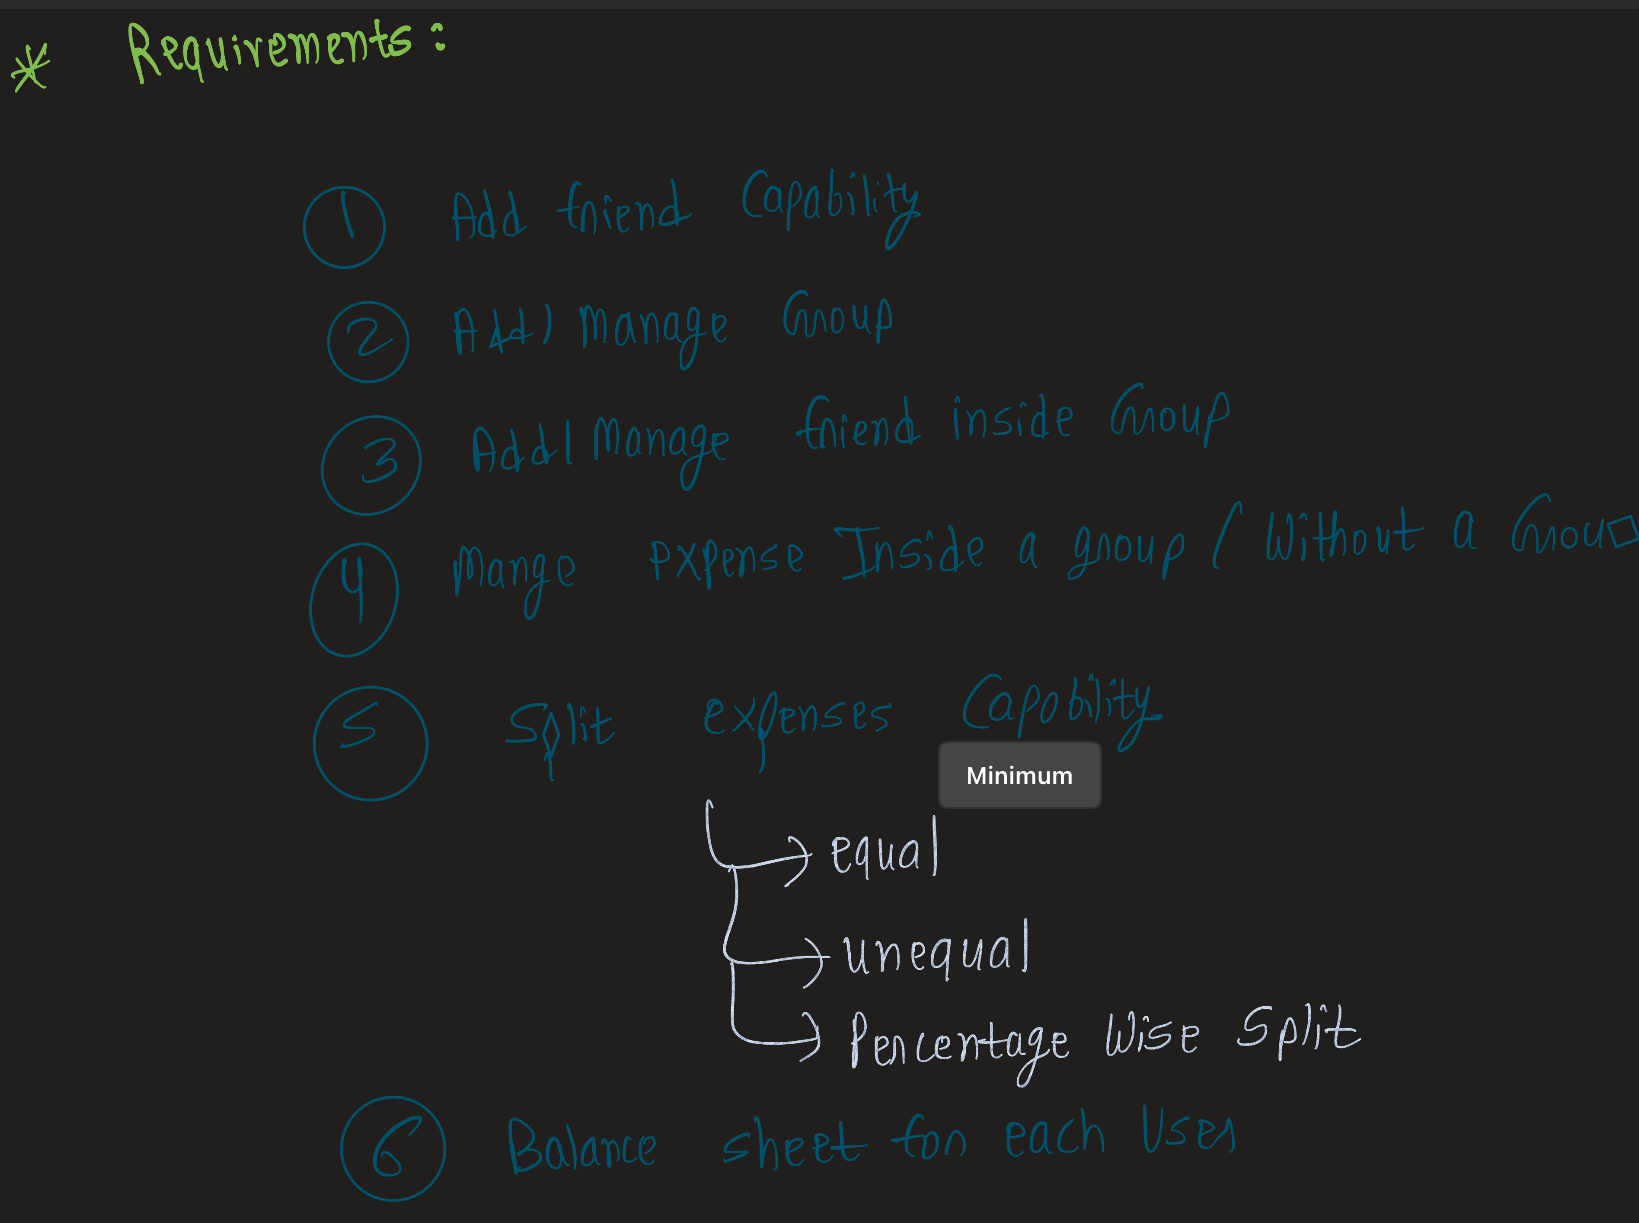 * Requirements:
1 Add friend Capability
2 Add/ Manage Group
3 Add/Manage friend inside Group
4 Mange Expense Inside a group / Without a Group
5 Split expenses Capability
Minimum
→ equal
→ unequal
→ Percentage Wise Split
6 Balance sheet for each User